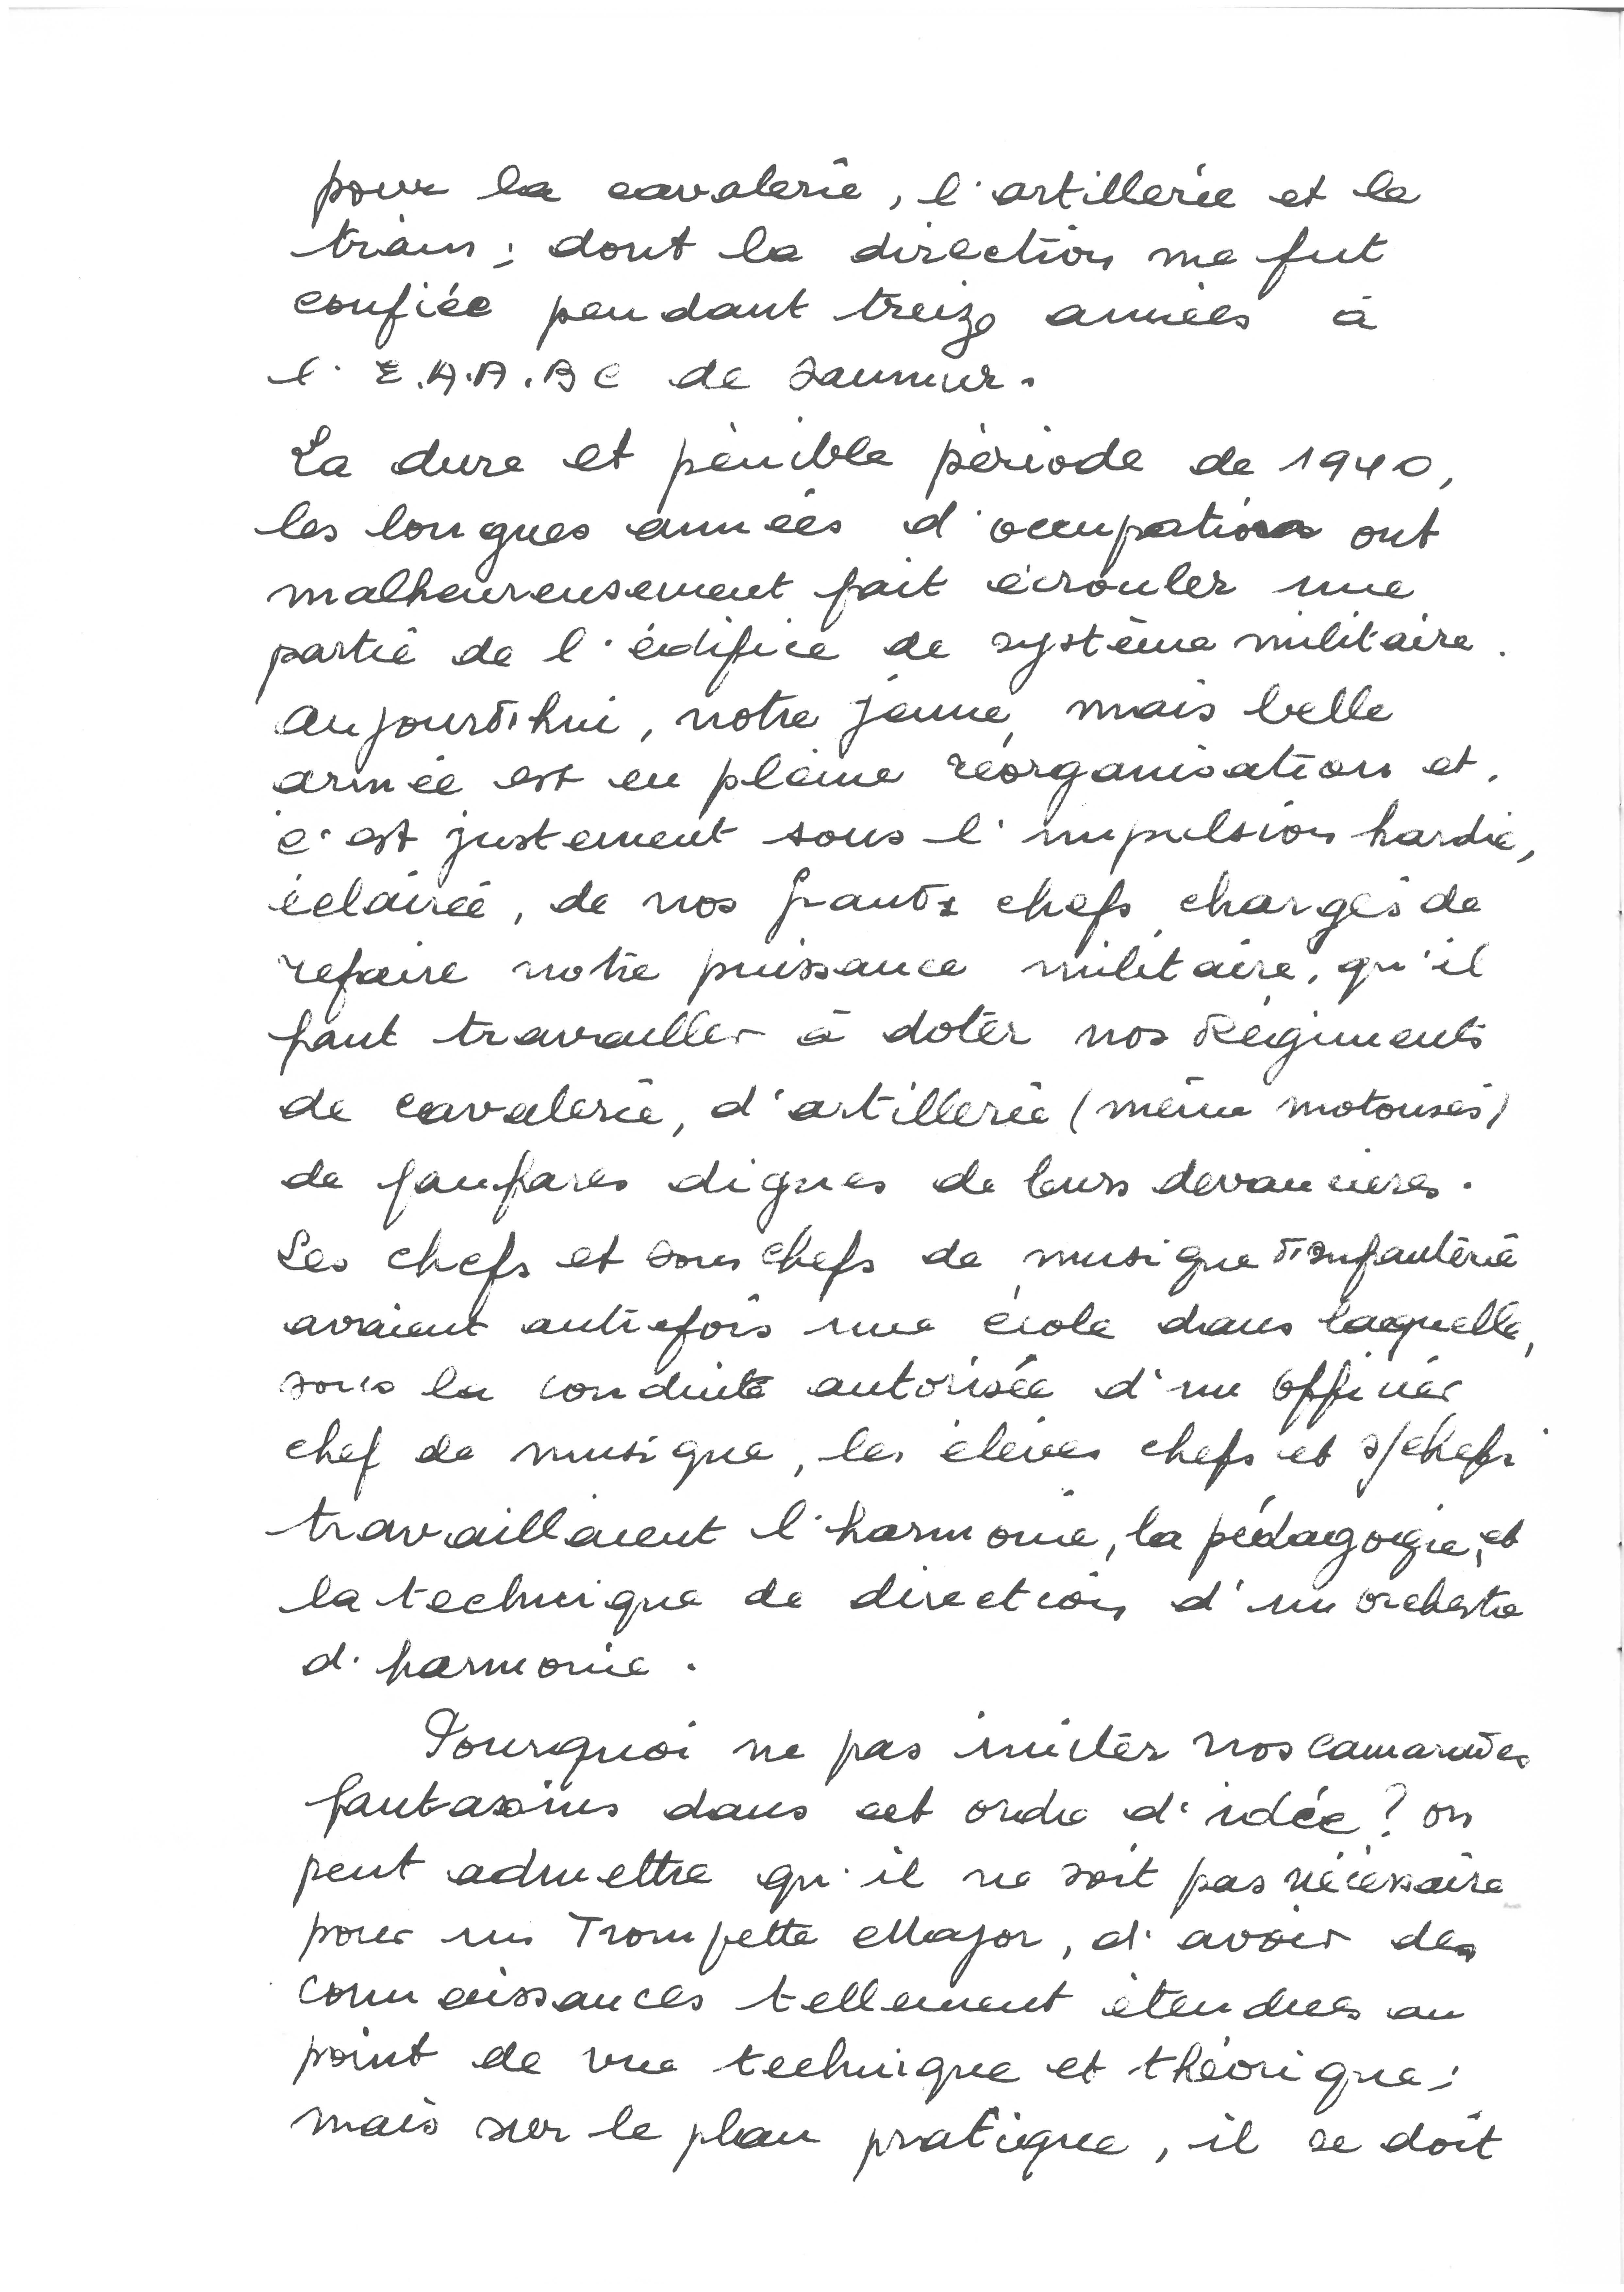 pour la cavalerie, l'artillerie et le
train ; dont la direction me fut
confiée pendant treize années à
l'E.A.A.B C de Saumur.
La dure et pénible période de 1940,
les longues années d'occupation ont
malheureusement fait écrouler une
partie de l'édifice de système militaire.
Aujourd'hui, notre jeune, mais belle
armée est en pleine réorganisation et,
c'est justement sous l'impulsion hardie,
éclairée, de nos grands chefs, chargés de
refaire notre puissance militaire, qu'il
faut travailler à doter nos Régiments
de cavalerie, d'artillerie (même motorisés)
de fanfares dignes de leurs devancières.
Les chefs et sous chefs de musique d'Infanterie
avaient autrefois une école dans laquelle,
sous la conduite autorisée d'un officier
chef de musique, les élèves chefs et s/chefs
travaillaient l'harmonie, la pédagogie, et
la technique de direction d'un orchestre
d'harmonie.
Pourquoi ne pas imiter nos camarades
fantassins dans cet ordre d'idée ? on
peut admettre qu'il ne soit pas nécessaire
pour un Trompette Major, d'avoir des
connaissances tellement étendues au
point de vue technique et théorique ;
mais sur le plan pratique, il se doit